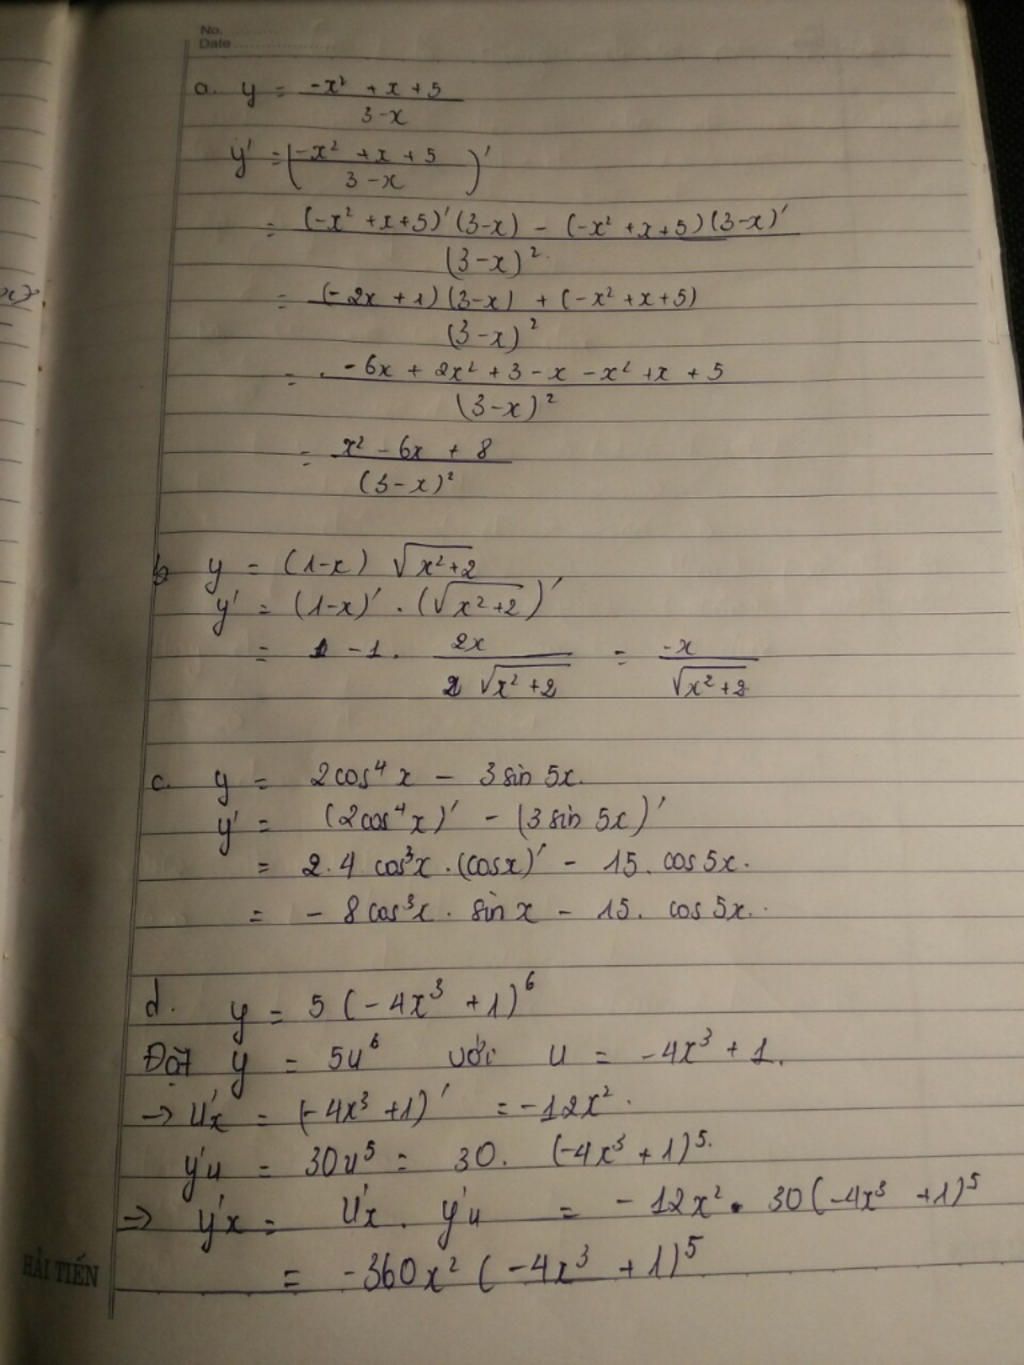 No.
Date
a. y = (-x² + x + 5)/(3-x)
y' = ((-x² + x + 5)/(3-x))'
= ((-x² + x + 5)'(3-x) - (-x² + x + 5)(3-x)')/(3-x)²
= ((-2x + 1)(3-x) + (-x² + x + 5))/(3-x)²
= (-6x + 2x² + 3 - x - x² + x + 5)/(3-x)²
= (x² - 6x + 8)/(3-x)²
b y = (1-x) √(x²+2)
y' = (1-x)' . (√(x²+2))'
= -1. 2x/(2√(x²+2)) = -x/√(x²+2)
c. y = 2cos⁴x - 3sin 5x.
y' = (2cos⁴x)' - (3sin 5x)'
= 2.4 cos³x .(cosx)' - 15. cos5x.
= - 8cos³x . sin x - 15. cos 5x.
d. y = 5(-4x³ + 1)⁶
Đặt y = 5u⁶ với u = -4x³ + 1.
→ u'x = (-4x³ + 1)' = -12x².
y'u = 30u⁵ = 30. (-4x³ + 1)⁵.
⇒ y'x = u'x . y'u = -12x² . 30(-4x³ + 1)⁵
= -360x² (-4x³ + 1)⁵
HẢI TIẾN